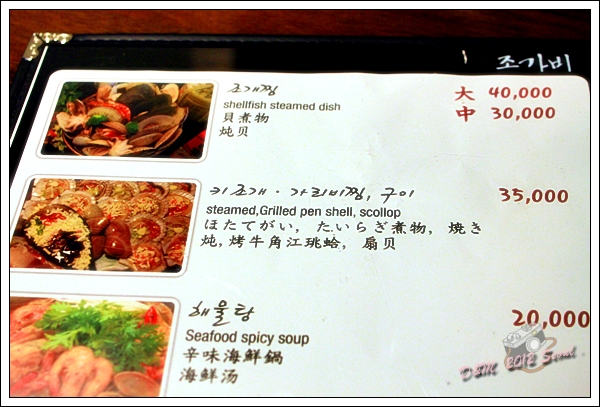 조가비
조개찜
大 40,000
shellfish steamed dish
貝煮物
中 30,000
炖贝
키조개·가리비찜, 구이
35,000
steamed,Grilled pen shell, scollop
ほたてがい, たいらぎ煮物, 焼き
炖,烤牛角江珧蛤, 扇贝
해물탕
20,000
Seafood spicy soup
辛味海鮮鍋
海鲜汤
D&M 2012 Seoul